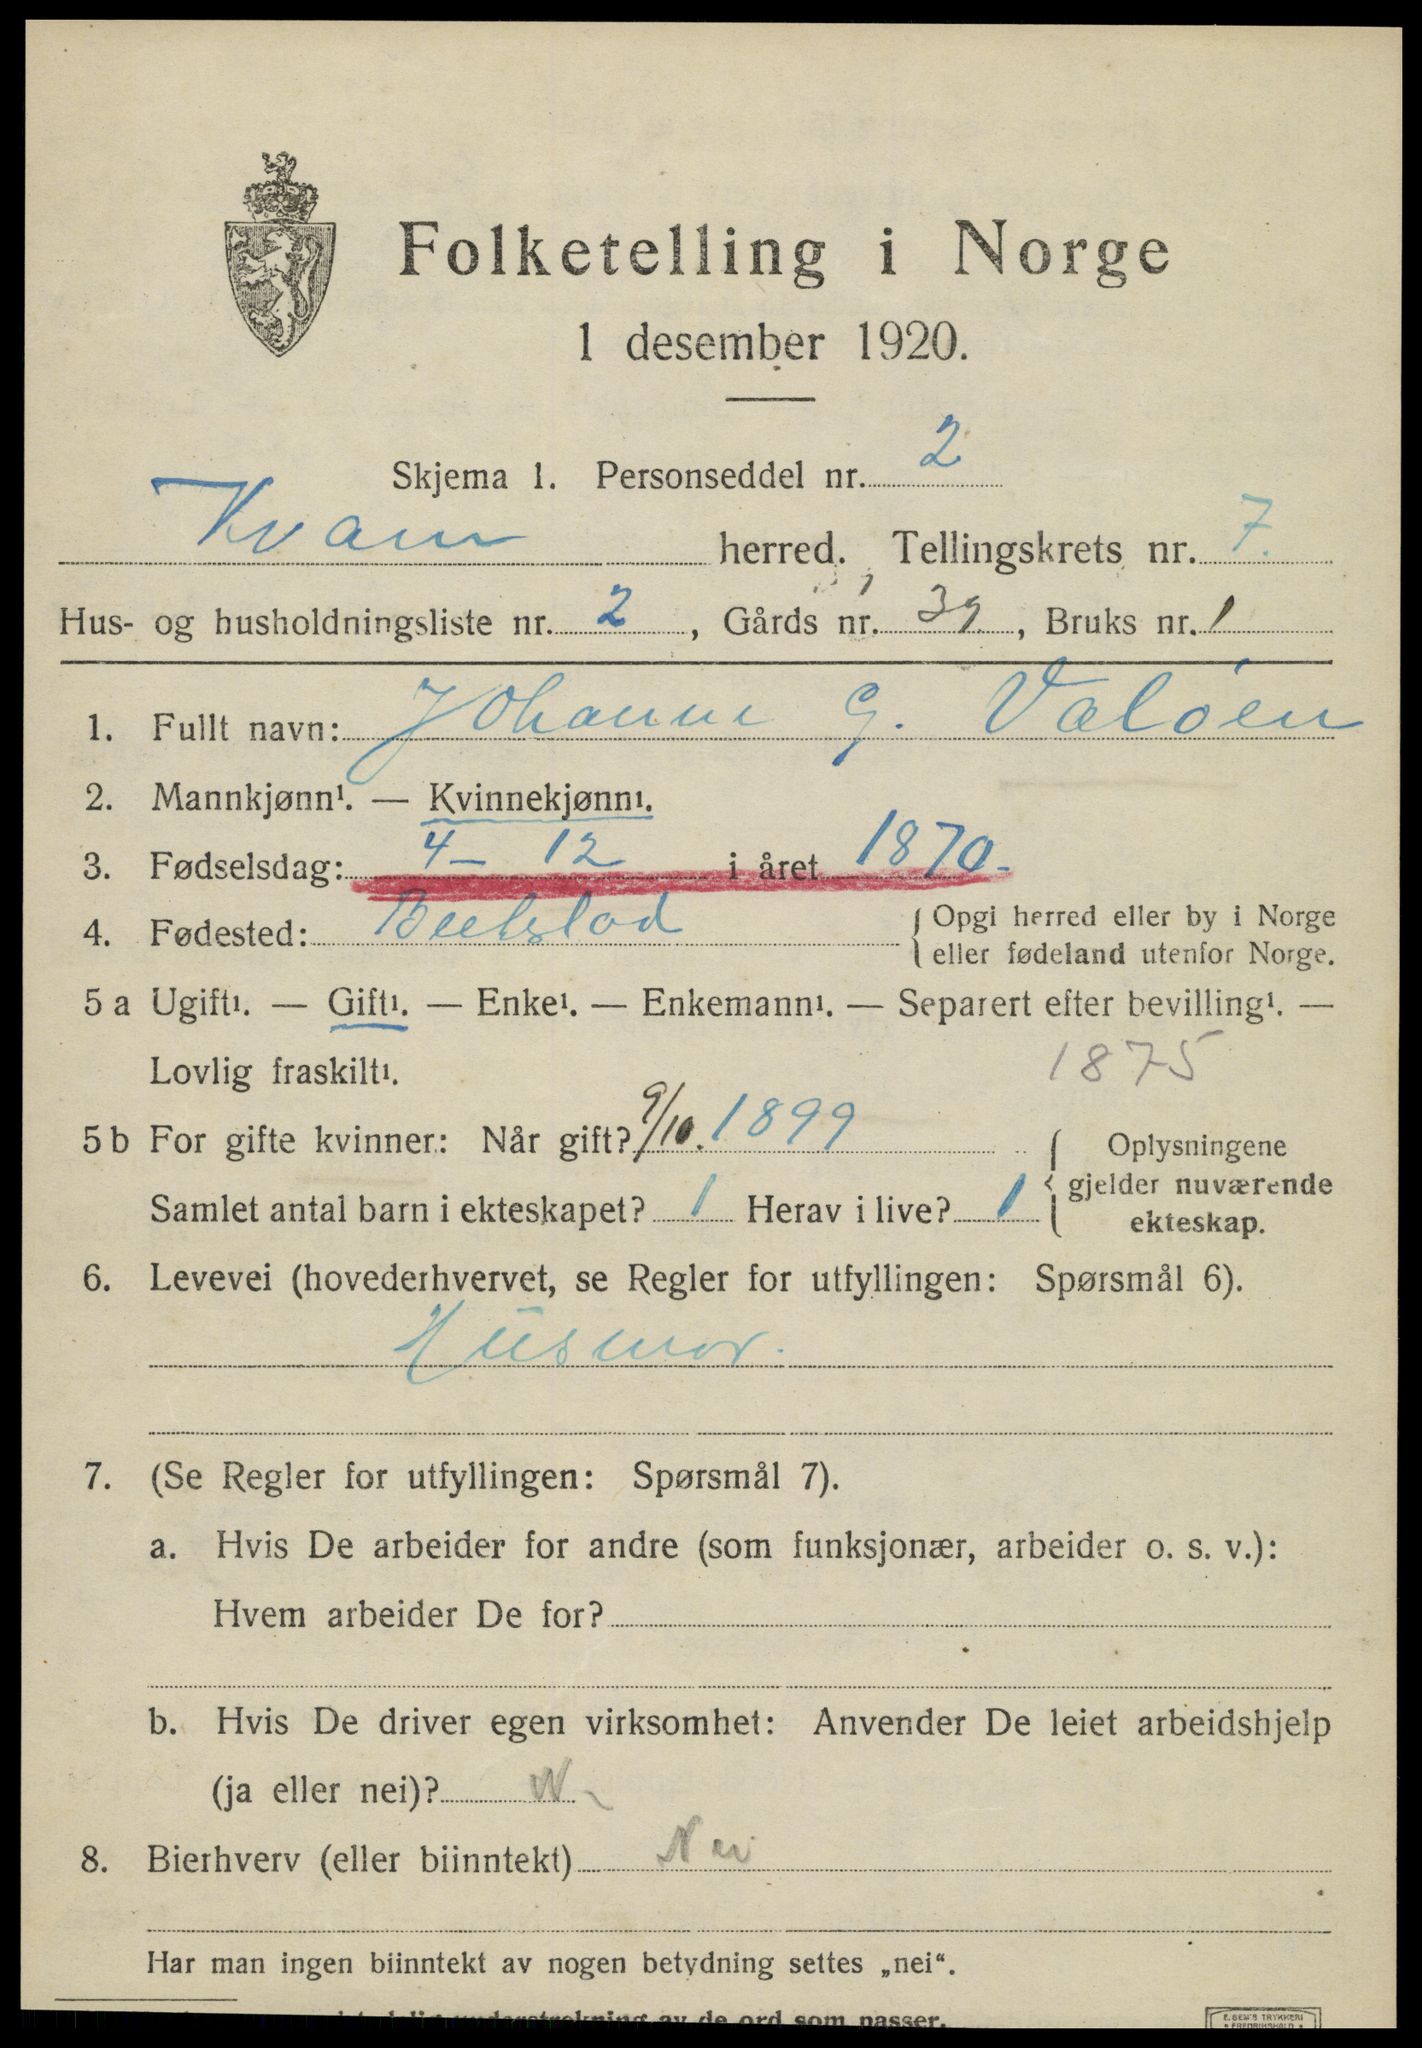 Folketelling i Norge
1 desember 1920.
Skjema 1. Personseddel nr. 2
Kvam herred. Tellingskrets nr. 7.
Hus- og husholdningsliste nr. 2, Gårds nr. 39, Bruks nr. 1
1. Fullt navn: Johanne G. Valøen
2. Mannkjønn¹. — Kvinnekjønn¹.
3. Fødselsdag: 4 – 12 i året 1870 -
4. Fødested: Beitstad { Opgi herred eller by i Norge
eller fødeland utenfor Norge.
5 a Ugift¹. — Gift¹. — Enke¹. — Enkemann¹. — Separert efter bevilling¹. —
Lovlig fraskilt¹. 1875
5 b For gifte kvinner: Når gift? 9/10. 1899
Samlet antal barn i ekteskapet? 1 Herav i live? 1
{ Oplysningene
gjelder nuværende
ekteskap.
6. Levevei (hovederhvervet, se Regler for utfyllingen: Spørsmål 6).
Husmor.
7. (Se Regler for utfyllingen: Spørsmål 7).
a. Hvis De arbeider for andre (som funksjonær, arbeider o. s. v.):
Hvem arbeider De for?
b. Hvis De driver egen virksomhet: Anvender De leiet arbeidshjelp
(ja eller nei)? N
8. Bierhverv (eller biinntekt) Nei
Har man ingen biinntekt av nogen betydning settes „nei“.
understrekning av de ord som passer.